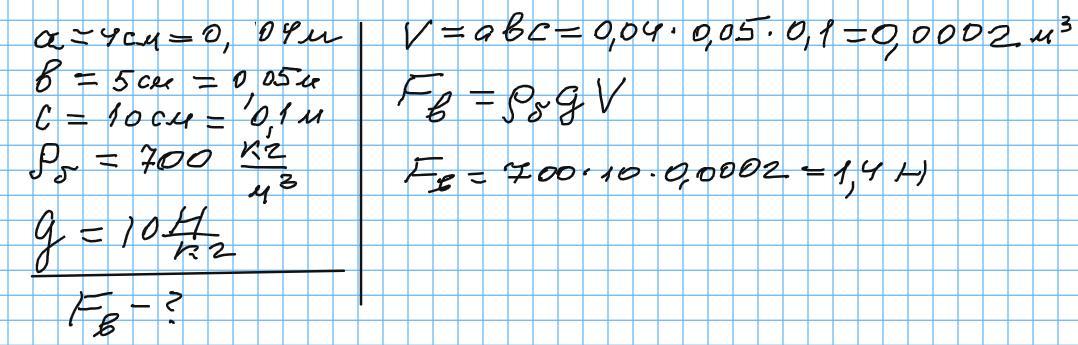 a = 4см = 0,04м
в = 5см = 0,05м
с = 10см = 0,1м
ρб = 700 кг/м³
g = 10 Н/кг
Fв - ?
V = авс = 0,04 · 0,05 · 0,1 = 0,0002 м³
Fв = ρб g V
Fв = 700 · 10 · 0,0002 = 1,4 Н